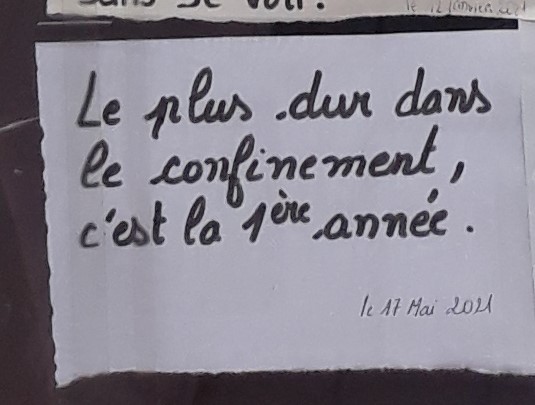 le 12 janvier 2021
Le plus dur dans
le confinement,
c'est la 1ère année.
le 17 Mai 2021